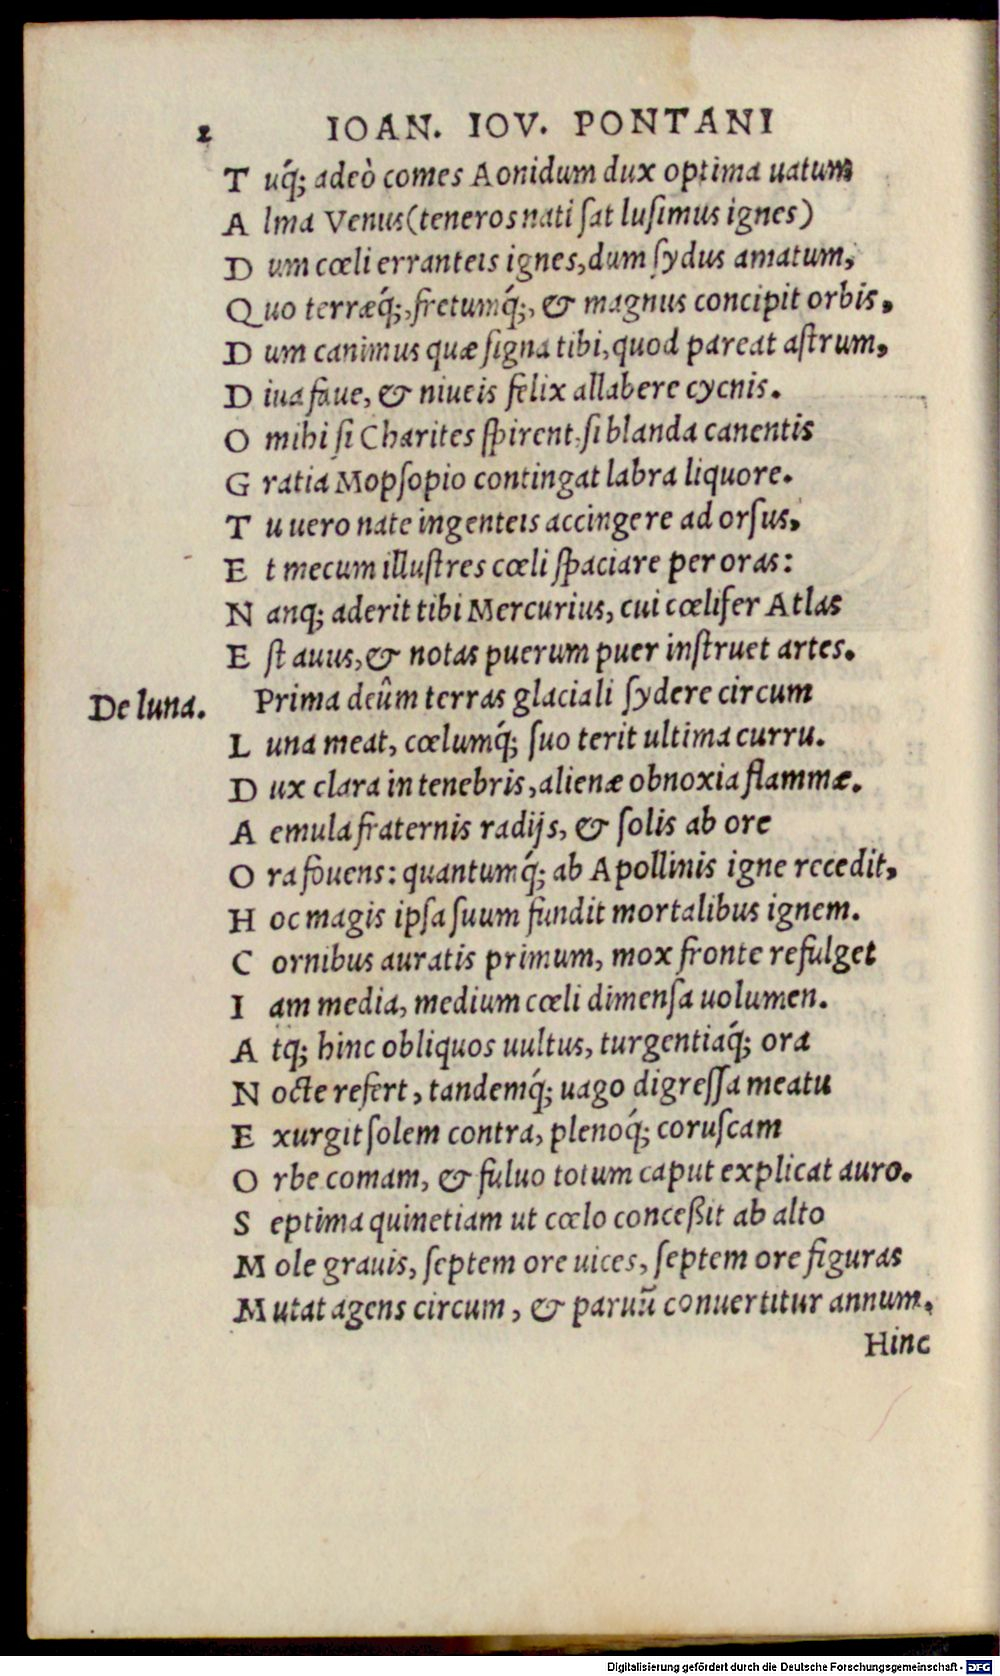 2 IOAN. IOV. PONTANI
T uq́; adeò comes Aonidum dux optima uatum
A lma Venus (teneros nati ſat luſimus ignes)
D um cœli erranteis ignes, dum ſydus amatum,
Q uo terræq́;, fretumq́;, & magnus concipit orbis,
D um canimus quæ ſigna tibi, quod pareat aſtrum,
D iua faue, & niueis felix allabere cycnis.
O mihi ſi Charites ſpirent, ſi blanda canentis
G ratia Mopſopio contingat labra liquore.
T u uero nate ingenteis accingere ad orſus,
E t mecum illuſtres cœli ſpaciare per oras:
N anq; aderit tibi Mercurius, cui cœlifer Atlas
E ſt auus, & notas puerum puer inſtruet artes.
De luna. Prima deûm terras glaciali ſydere circum
L una meat, cœlumq́; ſuo terit ultima curru.
D ux clara in tenebris, alienæ obnoxia flammæ.
A emula fraternis radijs, & ſolis ab ore
O ra fouens: quantumq́; ab Apollinis igne recedit,
H oc magis ipſa ſuum fundit mortalibus ignem.
C ornibus auratis primum, mox fronte refulget
I am media, medium cœli dimenſa uolumen.
A tq; hinc obliquos uultus, turgentiaq́; ora
N octe refert, tandemq́; uago digreſſa meatu
E xurgit ſolem contra, plenoq́; coruſcam
O rbe comam, & fuluo totum caput explicat auro.
S eptima quinetiam ut cœlo conceßit ab alto
M ole grauis, ſeptem ore uices, ſeptem ore figuras
M utat agens circum, & paruũ conuertitur annum.
Hinc
Digitalisierung gefördert durch die Deutsche Forschungsgemeinschaft - DFG